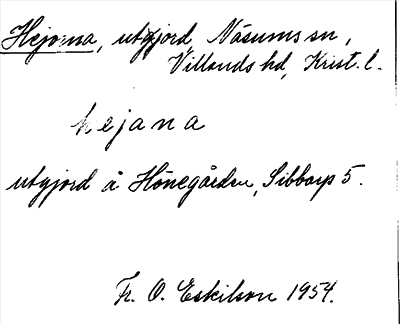 Hejorna, utgjord, Näsums sn,
Villands hd, Krist. l.
hejana
utgjord å Hönegården, Sibbarp 5.
Fr. O. Eskilson 1954.